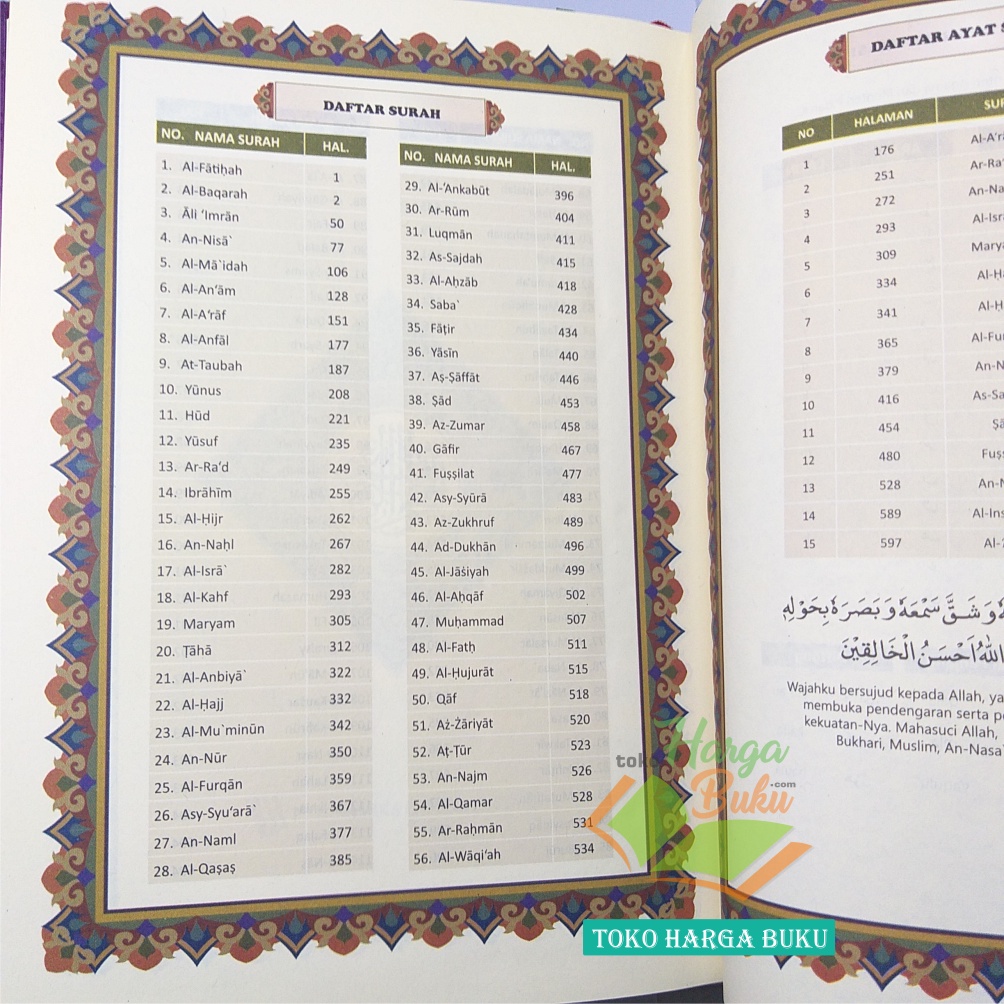 DAFTAR SURAH
NO. NAMA SURAH HAL.
1. Al-Fātiḥah 1
2. Al-Baqarah 2
3. Āli ‘Imrān 50
4. An-Nisā` 77
5. Al-Mā`idah 106
6. Al-An‘ām 128
7. Al-A‘rāf 151
8. Al-Anfāl 177
9. At-Taubah 187
10. Yūnus 208
11. Hūd 221
12. Yūsuf 235
13. Ar-Ra‘d 249
14. Ibrāhīm 255
15. Al-Ḥijr 262
16. An-Naḥl 267
17. Al-Isrā` 282
18. Al-Kahf 293
19. Maryam 305
20. Ṭāhā 312
21. Al-Anbiyā` 322
22. Al-Ḥajj 332
23. Al-Mu`minūn 342
24. An-Nūr 350
25. Al-Furqān 359
26. Asy-Syu‘arā` 367
27. An-Naml 377
28. Al-Qaṣaṣ 385
NO. NAMA SURAH HAL.
29. Al-‘Ankabūt 396
30. Ar-Rūm 404
31. Luqmān 411
32. As-Sajdah 415
33. Al-Aḥzāb 418
34. Saba` 428
35. Fāṭir 434
36. Yāsīn 440
37. Aṣ-Ṣāffāt 446
38. Ṣād 453
39. Az-Zumar 458
40. Gāfir 467
41. Fuṣṣilat 477
42. Asy-Syūrā 483
43. Az-Zukhruf 489
44. Ad-Dukhān 496
45. Al-Jāṡiyah 499
46. Al-Aḥqāf 502
47. Muḥammad 507
48. Al-Fatḥ 511
49. Al-Ḥujurāt 515
50. Qāf 518
51. Aż-Żāriyāt 520
52. Aṭ-Ṭūr 523
53. An-Najm 526
54. Al-Qamar 528
55. Ar-Raḥmān 531
56. Al-Wāqi‘ah 534
DAFTAR AYAT
NO HALAMAN
1 176
2 251
3 272
4 293
5 309
6 334
7 341
8 365
9 379
10 416
11 454
12 480
13 528
14 589
15 597
وَشَقَّ سَمْعَهُ وَبَصَرَهُ بِحَوْلِهِ
اللهُ اَحْسَنُ الْخَالِقِيْنَ
Wajahku bersujud kepada Allah,
membuka pendengaran serta
kekuatan-Nya. Mahasuci Allah,
Bukhari, Muslim, An-Nasa
toko Harga
Buku .com
TOKO HARGA BUKU